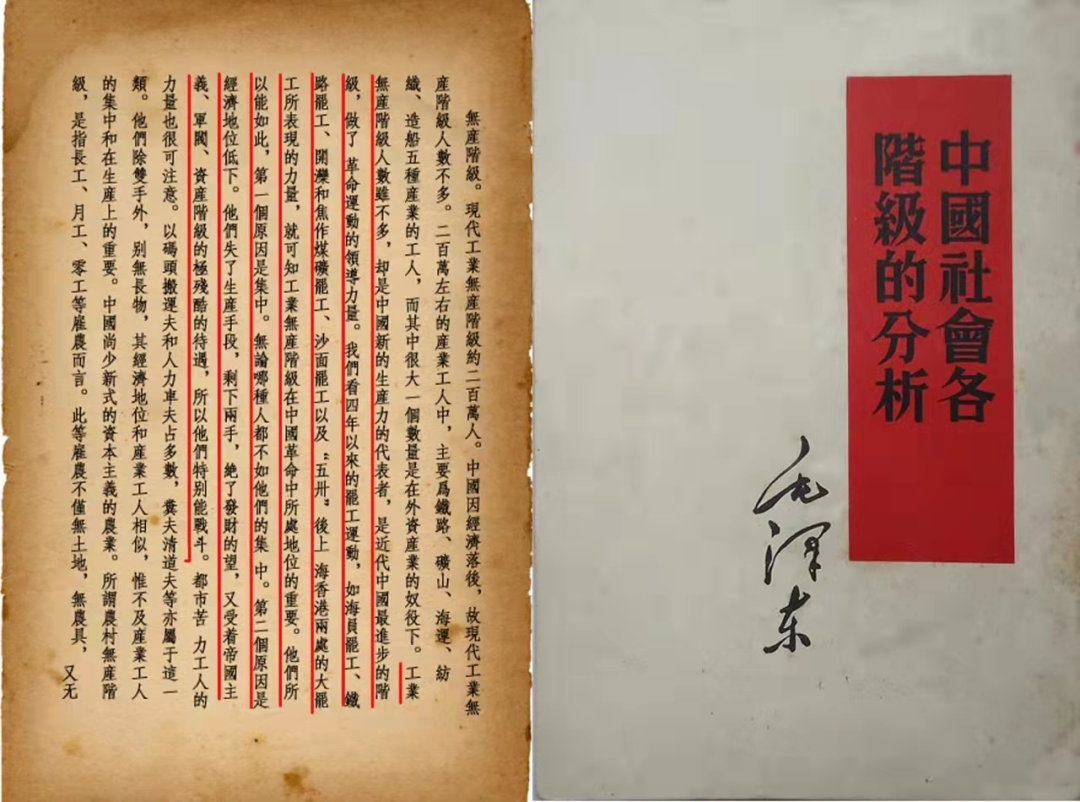 無產階級。現代工業無產階級約二百萬人。中國因經濟落後，故現代工業無
產階級人數不多。二百萬左右的產業工人中，主要爲鐵路、礦山、海運、紡
織、造船五種產業的工人，而其中很大一個數量是在外資產業的奴役下。工業
無產階級人數雖不多，却是中國新的生產力的代表者，是近代中國最進步的階
級，做了革命運動的領導力量。我們看四年以來的罷工運動，如海員罷工、鐵
路罷工、開灤和焦作煤礦罷工、沙面罷工以及“五卅”後上海香港兩處的大罷
工所表現的力量，就可知工業無產階級在中國革命中所處地位的重要。他們所
以能如此，第一個原因是集中。無論哪種人都不如他們的集中。第二個原因是
經濟地位低下。他們失了生產手段，剩下兩手，絶了發財的望，又受着帝國主
義、軍閥、資產階級的極殘酷的待遇，所以他們特别能戰斗。都市苦力工人的
力量也很可注意。以碼頭搬運夫和人力車夫占多數，糞夫清道夫等亦屬于這一
類。他們除雙手外，别無長物，其經濟地位和產業工人相似，惟不及產業工人
的集中和在生產上的重要。中國尚少新式的資本主義的農業。所謂農村無產階
級，是指長工、月工、零工等雇農而言。此等雇農不僅無土地，無農具，又无
中國社會各
階級的分析
毛澤东